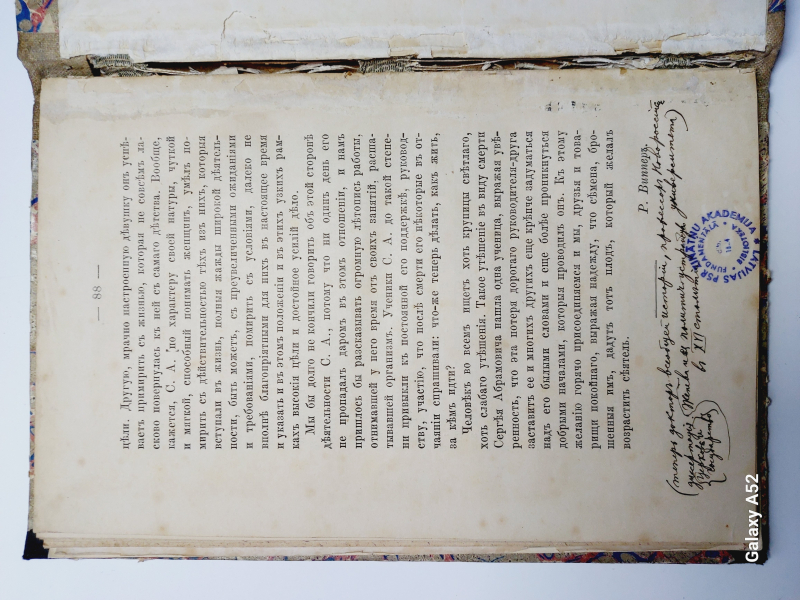 — 88 —
цѣли. Другую, мрачно настроенную дѣвушку онъ успѣ-
ваетъ примирить съ жизнью, которая не совсѣмъ ла-
сково повернулась къ ней съ самаго дѣтства. Вообще,
кажется, С. А., по характеру своей натуры, чуткой
и мягкой, способный понимать женщинъ, умѣлъ по-
мирить съ дѣйствительностью тѣхъ изъ нихъ, которыя
вступали въ жизнь, полныя жажды широкой дѣятель-
ности, быть можетъ, съ преувеличенными ожиданіями
и требованіями, помирить съ условіями, далеко не
вполнѣ благопріятными для нихъ въ настоящее время
и указать и въ этомъ положеніи и въ этихъ узкихъ рам-
кахъ высокія цѣли и достойное усилій дѣло.
Мы бы долго не кончили говорить объ этой сторонѣ
дѣятельности С. А., потому что ни одинъ день его
не пропадалъ даромъ въ этомъ отношеніи, и намъ
пришлось бы разсказывать огромную лѣтопись работы,
отнимавшей у него время отъ своихъ занятій, расша-
тывавшей организмъ. Ученики С. А. до такой степе-
ни привыкли къ постоянной его поддержкѣ, руковод-
ству, участію, что послѣ смерти его нѣкоторые въ от-
чаяніи спрашивали: что-же теперь дѣлать, какъ жить,
за кѣмъ идти?
Человѣкъ во всемъ ищетъ хоть крупицы свѣтлаго,
хоть слабаго утѣшенія. Такое утѣшеніе въ виду смерти
Сергѣя Абрамовича нашла одна ученица, выражая увѣ-
ренность, что эта потеря дорогаго руководителя-друга
заставитъ ее и многихъ другихъ еще крѣпче задуматься
надъ его былыми словами и еще болѣе проникнуться
добрыми началами, которыя проводилъ онъ. Къ этому
желанію горячо присоединяемся и мы, друзья и това-
рищи покойнаго, выражая надежду, что сѣмена, бро-
шенныя имъ, дадутъ тотъ плодъ, который желалъ
возрастить сѣятель.
Р. Випперъ.
(теперь докторъ всеобщей исторіи, профессоръ Новороссійск
университета)
въ XVI столѣтіи
LATVIJAS PSR ZINĀTŅU AKADEMIJA
FUNDAMENTĀLĀ
Galaxy A52